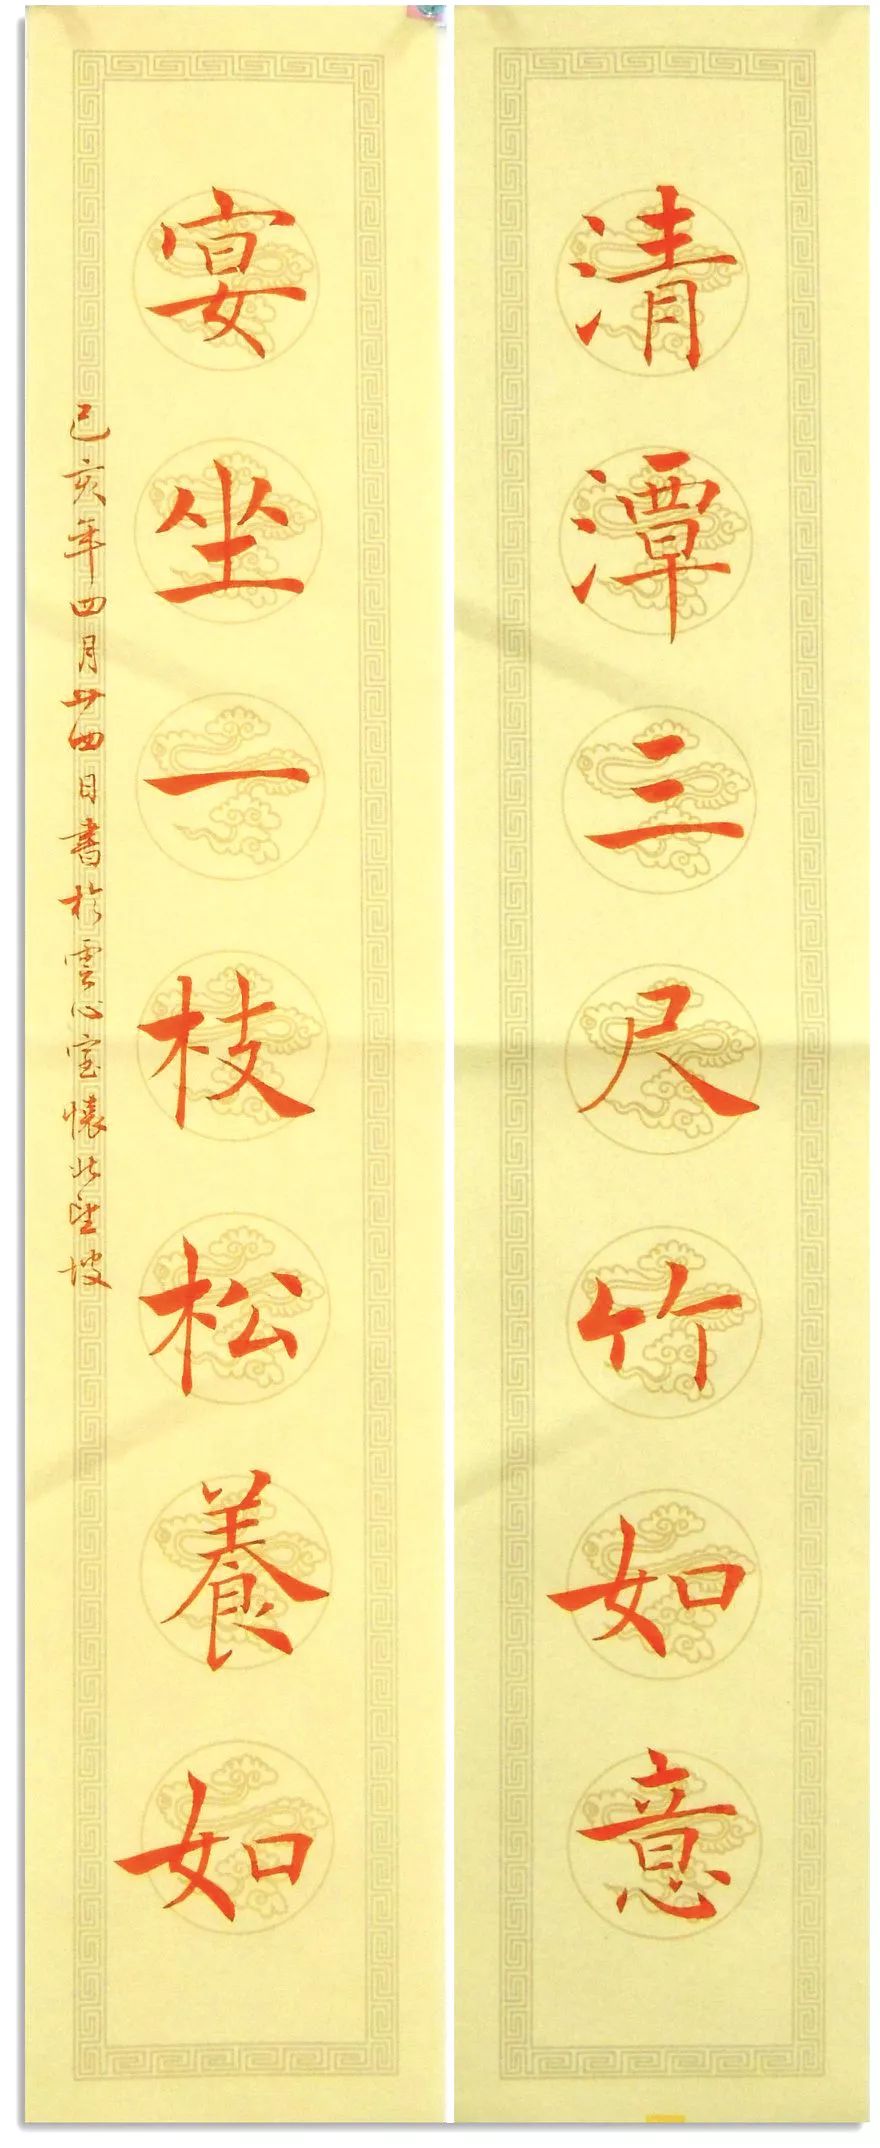 清潭三尺竹如意
宴坐一枝松養如
己亥年四月廿四日書於雲心室懷北望坡